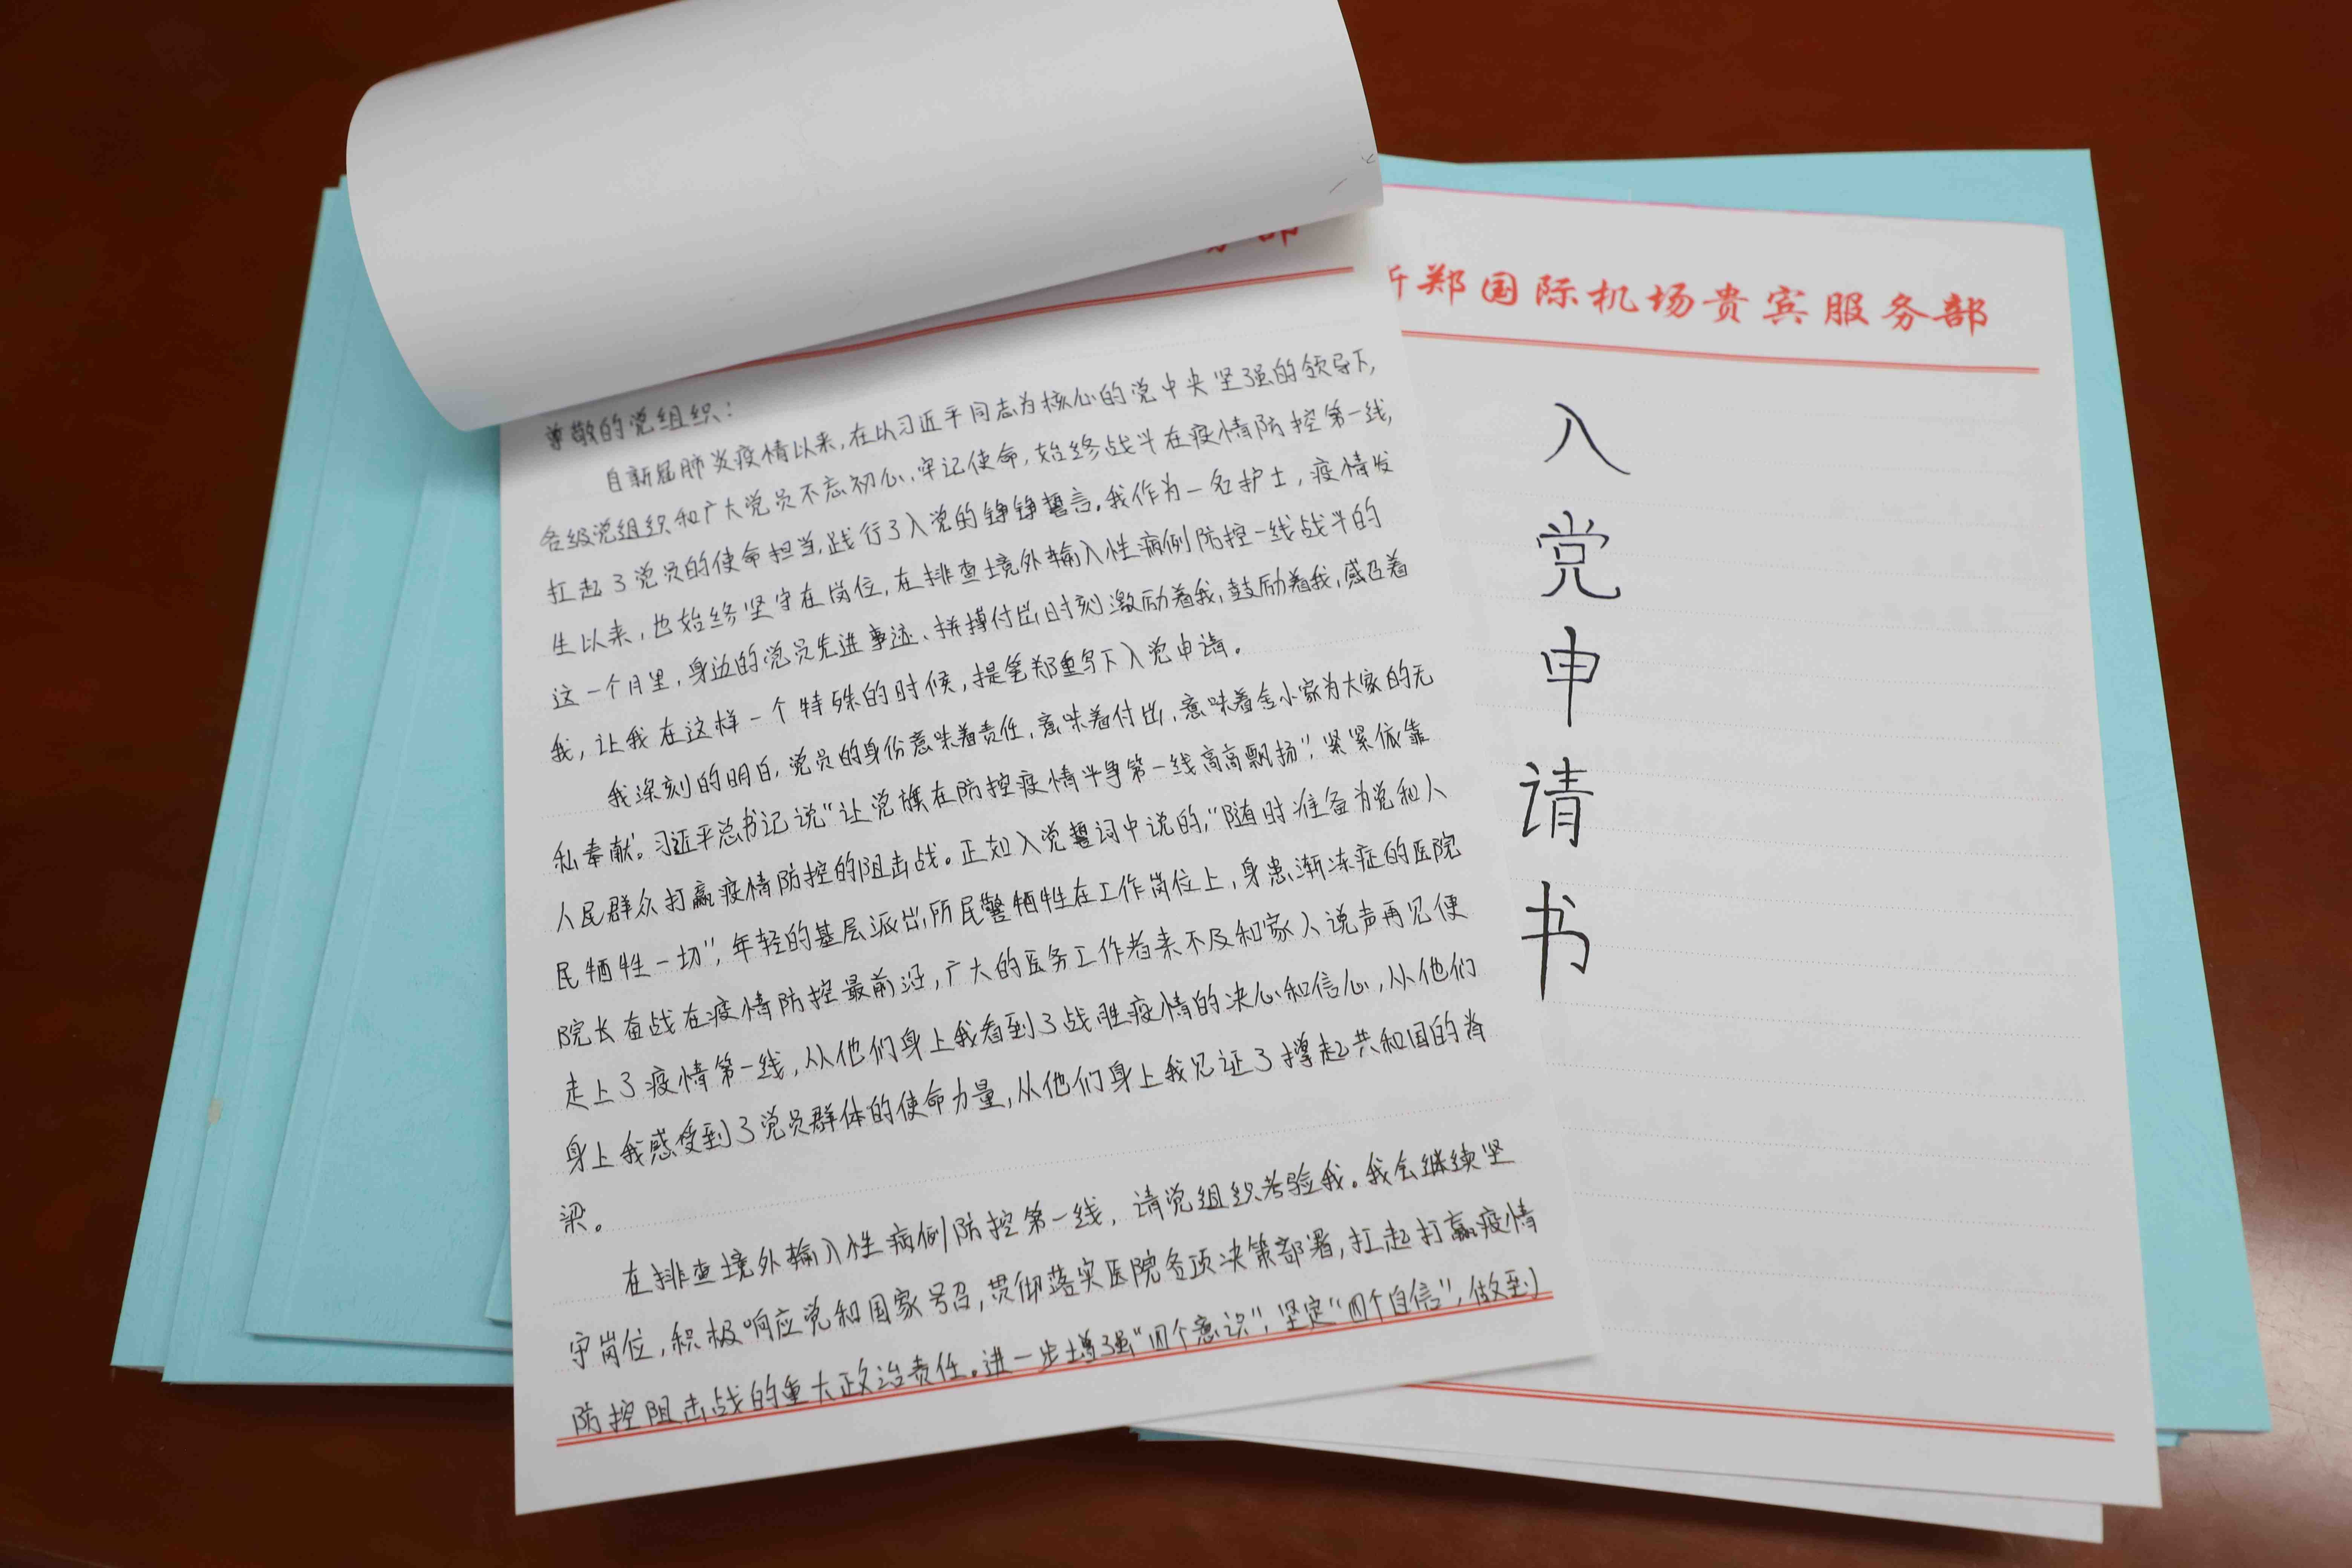 尊敬的党组织：
自新冠肺炎疫情以来，在以习近平同志为核心的党中央坚强的领导下，
各级党组织和广大党员不忘初心、牢记使命，始终战斗在疫情防控第一线，
扛起了党员的使命担当，践行了入党的铮铮誓言。我作为一名护士，疫情发
生以来，也始终坚守在岗位，在排查境外输入性病例防控一线战斗的
这一个月里，身边的党员先进事迹、拼搏付出时刻激励着我，鼓励着我，感召着
我，让我在这样一个特殊的时候，提笔郑重写下入党申请。
我深刻的明白，党员的身份意味着责任，意味着付出，意味着舍小家为大家的无
私奉献。习近平总书记说“让党旗在防控疫情斗争第一线高高飘扬”，紧紧依靠
人民群众打赢疫情防控的阻击战。正如入党誓词中说的，“随时准备为党和人
民牺牲一切”，年轻的基层派出所民警牺牲在工作岗位上，身患渐冻症的医院
院长奋战在疫情防控最前沿，广大的医务工作者来不及和家人说声再见便
走上了疫情第一线，从他们身上我看到了战胜疫情的决心和信心，从他们
身上我感受到了党员群体的使命力量，从他们身上我见证了撑起共和国的脊
梁。
在排查境外输入性病例防控第一线，请党组织考验我。我会继续坚
守岗位，积极响应党和国家号召，贯彻落实医院各项决策部署，扛起打赢疫情
防控阻击战的重大政治责任。进一步增强“四个意识”，坚定“四个自信”，做到
郑国际机场贵宾服务部
入
党
申
请
书